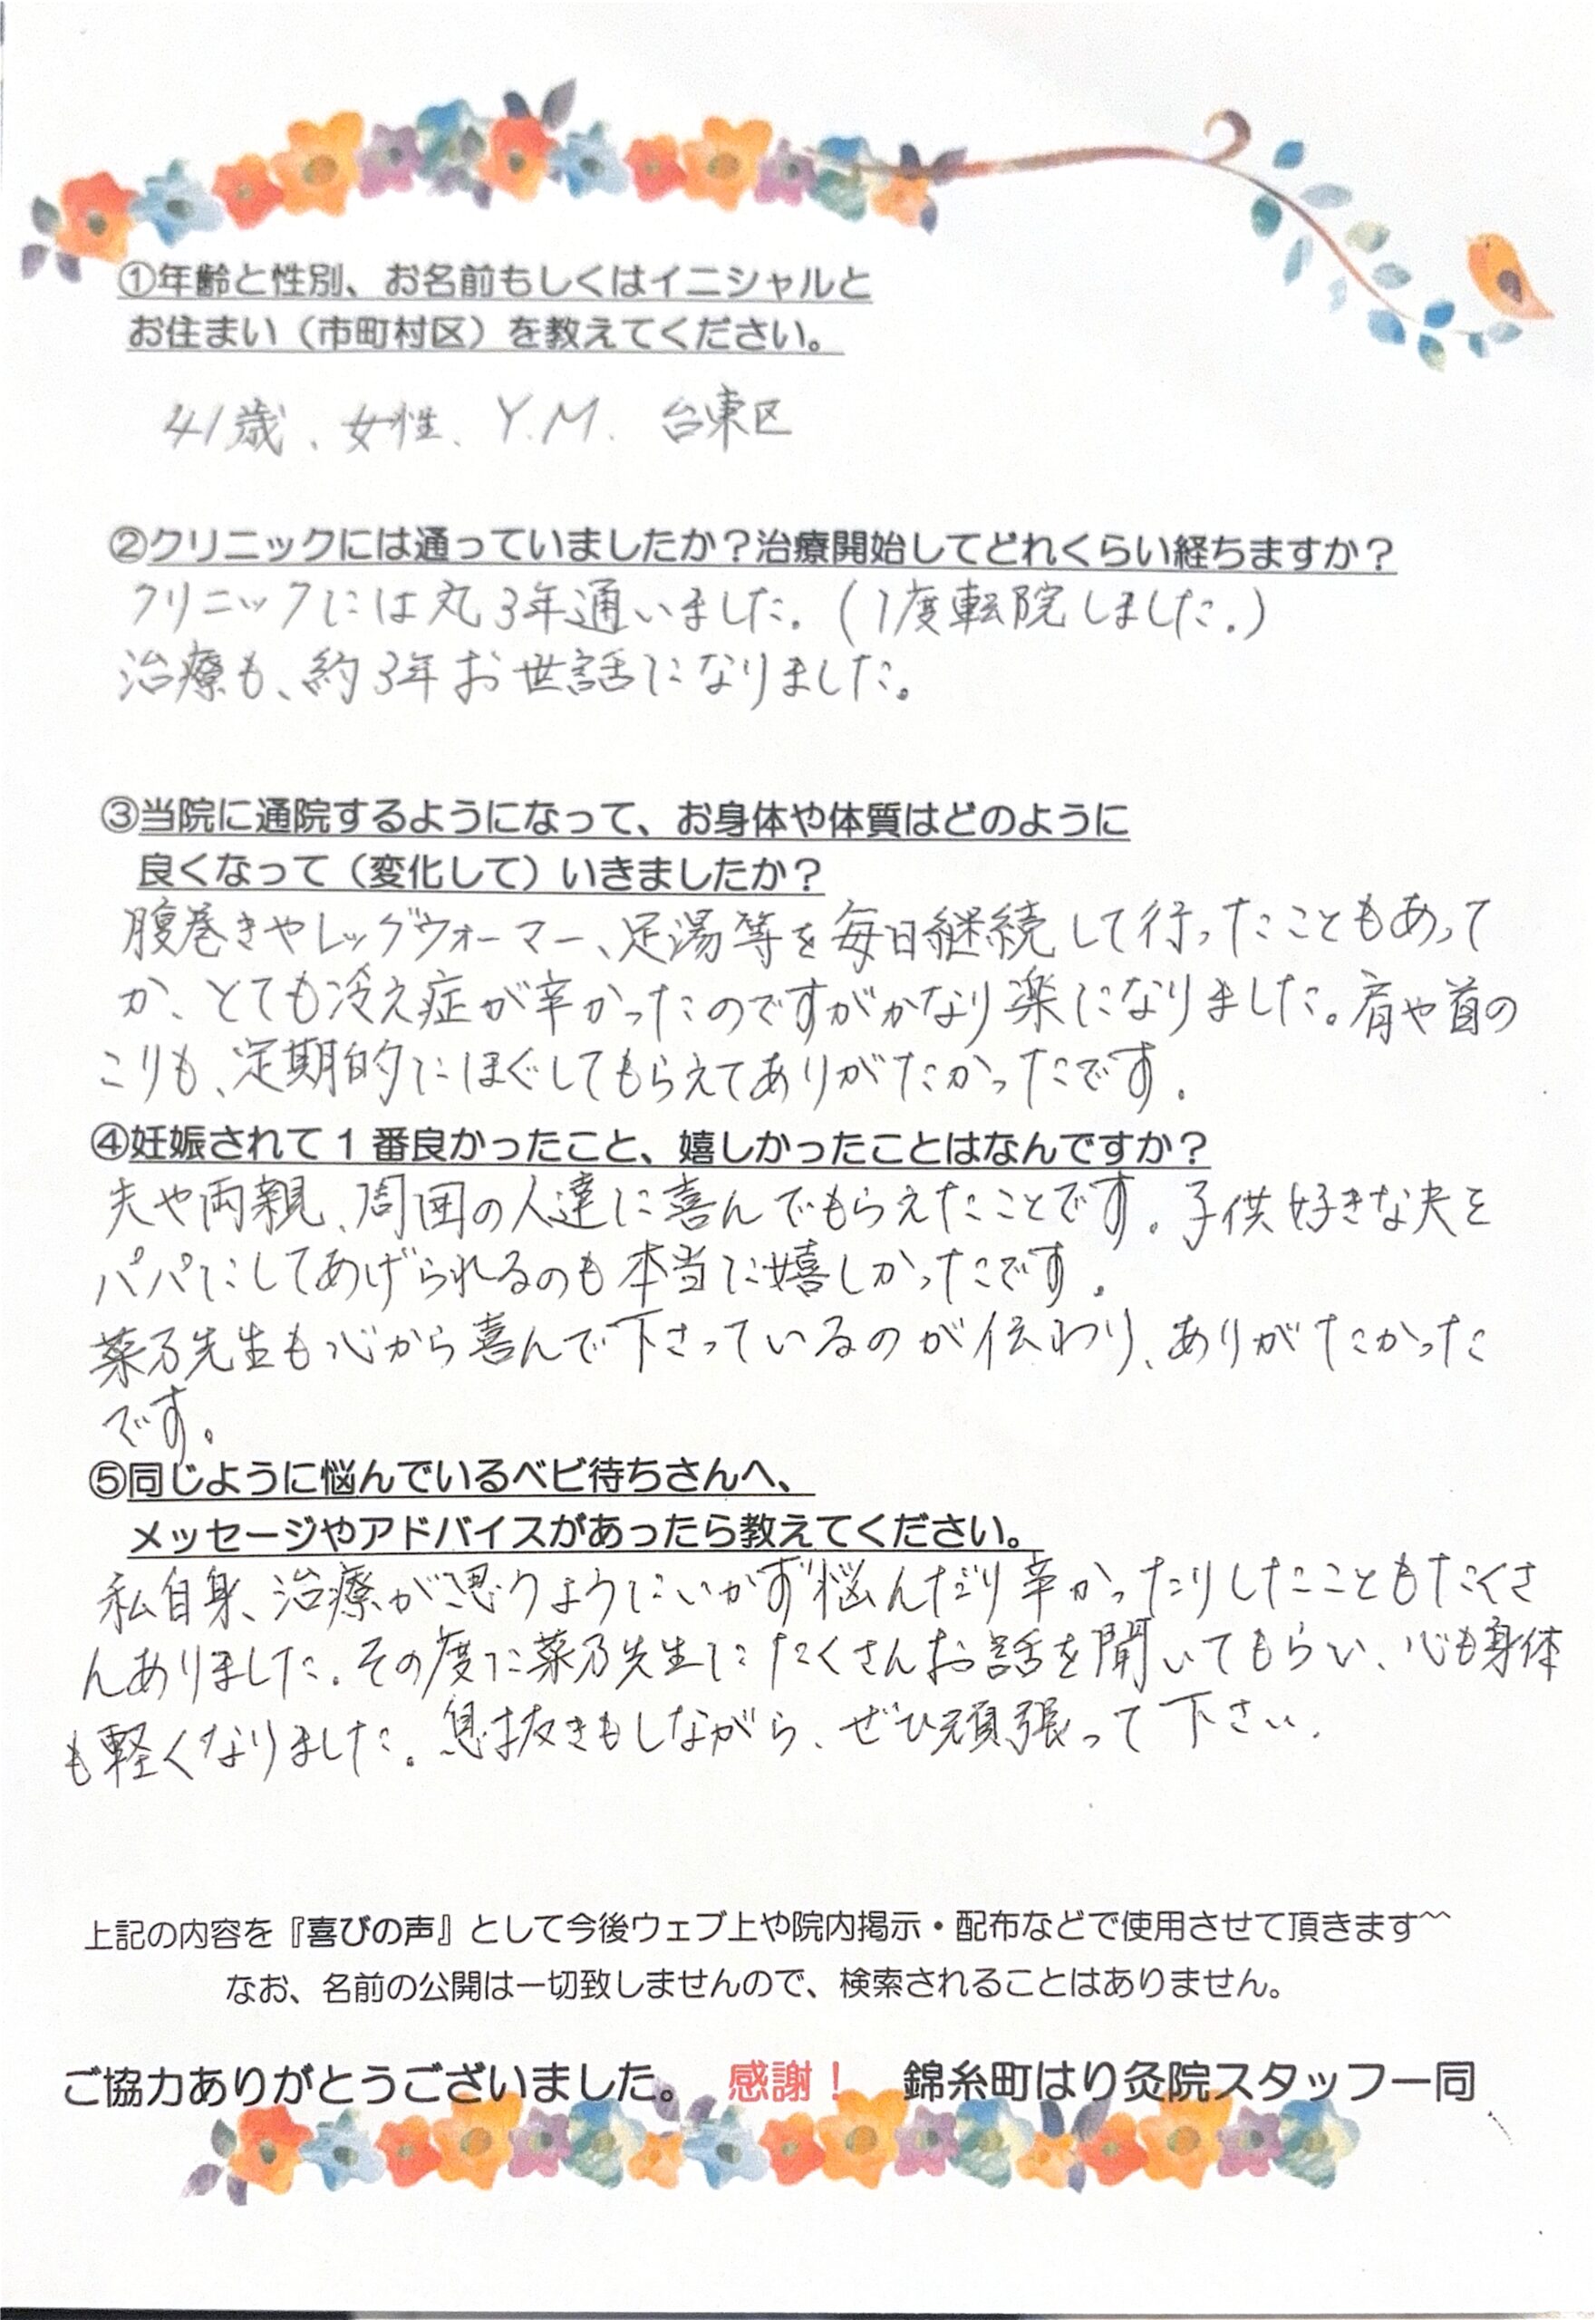 ①年齢と性別、お名前もしくはイニシャルと
お住まい（市町村区）を教えてください。
41歳、女性、Y.M. 台東区
②クリニックには通っていましたか？治療開始してどれくらい経ちますか？
クリニックには丸3年通いました。(1度転院しました.)
治療も、約3年お世話になりました。
③当院に通院するようになって、お身体や体質はどのように
良くなって（変化して）いきましたか？
腹巻きやレッグウォーマー、足湯等を毎日継続して行ったこともあって
か、とても冷え症が辛かったのですがかなり楽になりました。肩や首の
こりも、定期的にほぐしてもらえてありがたかったです。
④妊娠されて1番良かったこと、嬉しかったことはなんですか？
夫や両親、周囲の人達に喜んでもらえたことです。子供好きな夫を
パパにしてあげられるのも本当に嬉しかったです。
薬乃先生も心から喜んで下さっているのが伝わり、ありがたかった
です。
⑤同じように悩んでいるベビ待ちさんへ、
メッセージやアドバイスがあったら教えてください。
私自身、治療が思うようにいかず悩んだり辛かったりしたこともたくさ
んありました。その度に薬乃先生にたくさんお話を聞いてもらい、心も身体
も軽くなりました。息抜きもしながら、ぜひ頑張って下さい。
上記の内容を『喜びの声』として今後ウェブ上や院内掲示・配布などで使用させて頂きます^^
なお、名前の公開は一切致しませんので、検索されることはありません。
ご協力ありがとうございました。 感謝！ 錦糸町はり灸院スタッフ一同